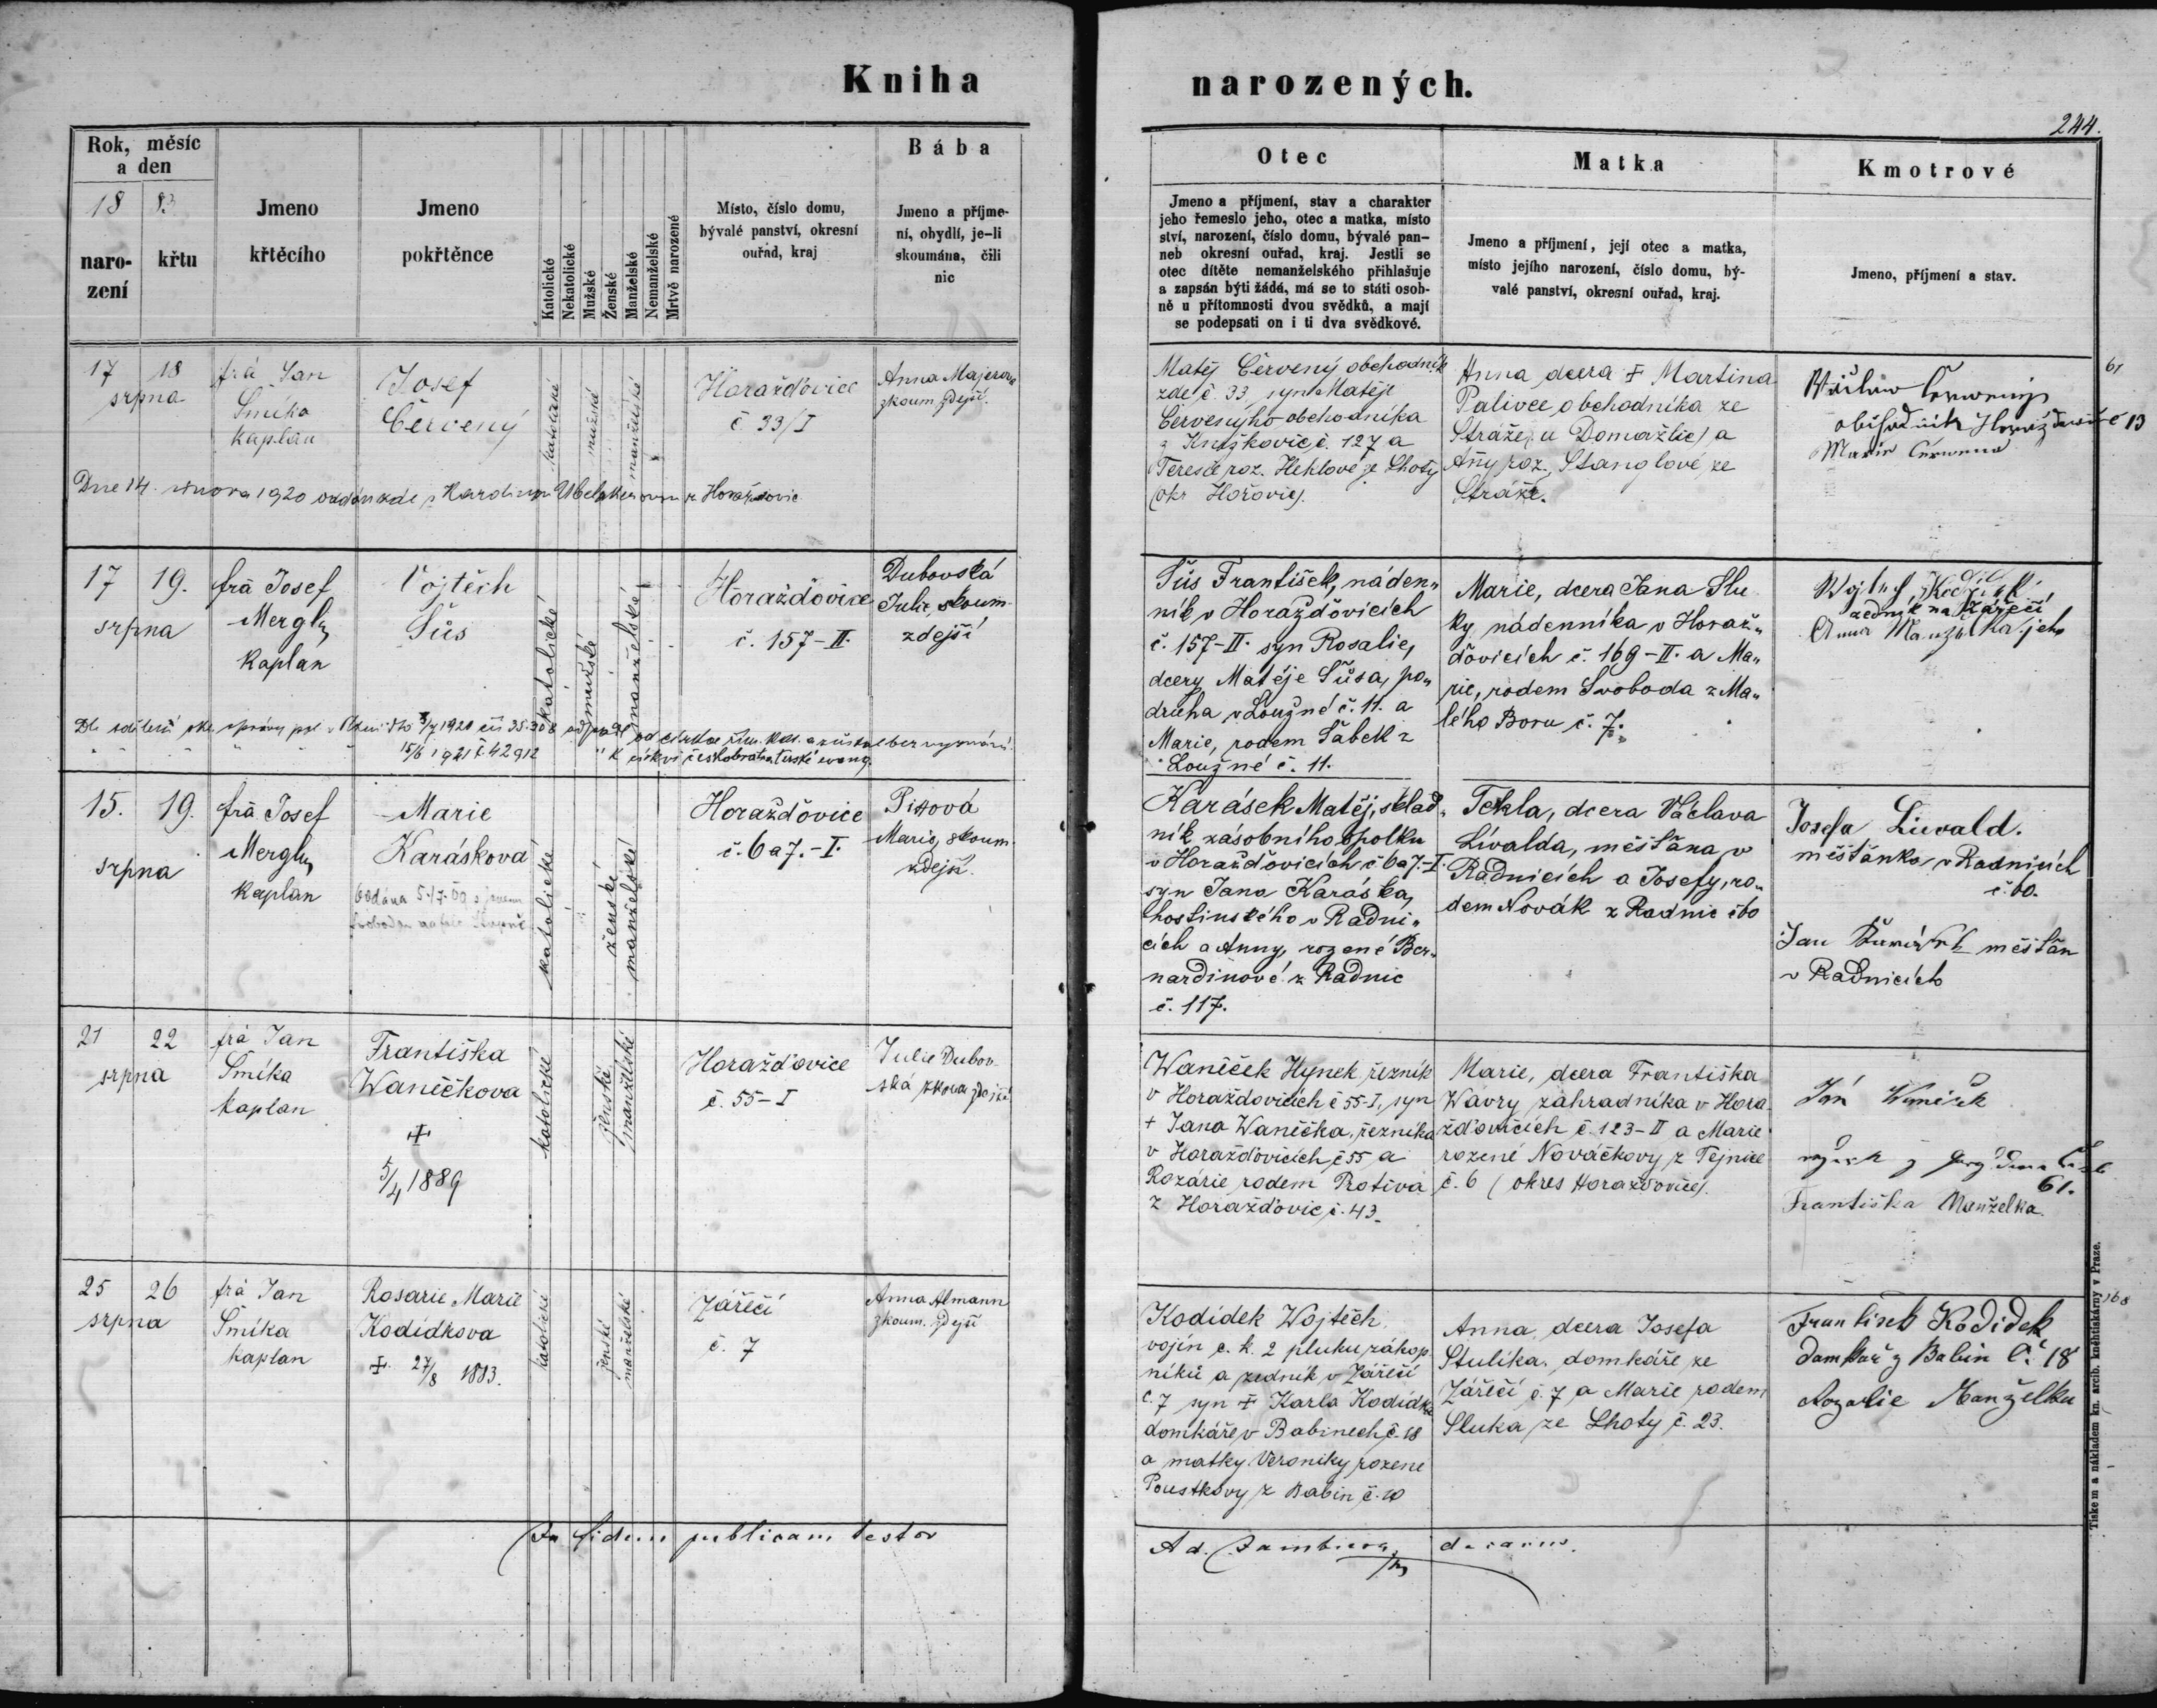 Kniha
narozených.
244.
Rok, měsíc
a den
18 83
naro-
zení
křtu
Jmeno
křtěcího
Jmeno
pokřtěnce
Katolické
Nekatolické
Mužské
Ženské
Manželské
Nemanželské
Mrtvě narozené
Místo, číslo domu,
bývalé panství, okresní
ouřad, kraj
Bába
Jmeno a příjme-
ní, obydlí, je-li
skoumána, čili
nic
Otec
Jmeno a příjmení, stav a charakter
jeho řemeslo jeho, otec a matka, místo
ství, narození, číslo domu, bývalé pan-
neb okresní ouřad, kraj. Jestli se
otec dítěte nemanželského přihlašuje
a zapsán býti žádá, má se to státi osob-
ně u přítomnosti dvou svědků, a mají
se podepsati on i ti dva svědkové.
Matka
Jmeno a příjmení, její otec a matka,
místo jejího narození, číslo domu, bý-
valé panství, okresní ouřad, kraj.
Kmotrové
Jmeno, příjmení a stav.
17 18
srpna
frá Jan
Smíka
kaplan
Josef
Červený
katolické
mužské
manželské
Horažďovice
č 33/I
Anna Majerová
zkoum. zdejší.
Dne 14. února 1920 oddán zde s Karolinou z Horažďovic
Matěj Červený obchodník
zde č. 33, syn Matěje
Červenýho obchodníka
z Kněžkovic č. 127 a
Teresie roz. Hehlové ze Lhoty
(okr Hořovic).
Anna dcera ✝ Martina
Palivce obchodníka ze
Stráže (u Domažlic) a
Ańy roz. Stanglové ze
Stráže.
61
č 13
17 19.
srpna
frà Josef
Mergl,
kaplan
Vojtěch
Šůs
katolické
mužské
manželské
Horažďovice
č. 157-II.
Dubovská
Julie, skoum.
zdejší
15/6 1921 č 42912 " k církvi českobratrské evang.
Šůs František, náden„
ník v Horažďovicích
č. 157-II. syn Rosalie,
dcery Matěje Šůsa, po„
druha v Loužné č. 11. a
Marie, rodem Šabek z
Loužné č. 11.
Marie, dcera Jana Slu
ky nádenníka v Horaž„
ďovicích č. 169-II. a Ma„
rie, rodem Svoboda z Ma„
lého Boru č. 7.
zedník na Zářečí
Anna Manželka jeho
15. 19.
srpna
frà Josef
Mergl,
kaplan
Marie
Karásková
katolické
ženské
manželské
Horažďovice
č. 6 a 7.-I.
Marie, skoum.
zdejší.
Karásek Matěj, sklad„
ník zásobního spolku
v Horažďovicích č 6a7.-I.
syn Jana Karáska,
hostinského v Radni„
cích a Anny, rozené Ber„
nardinové z Radnic
č. 117.
Tekla, dcera Václava
Lívalda, měšťana v
Radnicích a Josefy, ro„
dem Novák z Radnic č 60
Josefa Liewald.
měšťanka v Radnicích
č. 60.
Jan měšťan
v Radnicích
21 22
srpna
frá Jan
Smíka
kaplan
Františka
Waníčkova
✝
5/4 1889
katolické
ženské
manželské
Horažďovice
č. 55-I
Julie Dubov-
ská zkoum. zdejší
Waníček Hynek řezník
v Horažďovicích č 55-I, syn
+ Jana Waníčka, řezníka
v Horažďovicích, č 55 a
Rozárie rodem Protiva
z Horažďovic, č. 43.
Marie, dcera Františka
Wávry zahradníka v Hora
žďovicích č. 123-II a Marie
rozené Nováčkovy z Tějnice
č. 6 (okres Horažďovice).
Ján Waníček
61.
Františka Manželka.
25 26
srpna
frá Jan
Smíka
kaplan
Rosarie Marie
Kodidkova
✝ 27/8 1883.
katolické
ženské
manželské
Zářečí
č. 7
Anna Almann
zkoum. zdejší
Kodídek Wojtěch,
vojín c. k. 2 pluku zákop
níků a zedník v Zářečí
č. 7 syn ✝ Karla Kodídka
domkáře v Babinech č. 18
a matky Veroniky rozene
Poustkovy z Babin č. 10
Anna, dcera Josefa
Stulíka, domkáře ze
Zářečí č. 7 a Marie rodem
Sluka ze Lhoty č. 23.
František Kodidek
domkař z Babin č. 18
Rozalie Manželka
168
In fidem publicam testor
Ad. decanus.
Tiskem a nákladem kn. arcib. knihtiskárny v Praze.